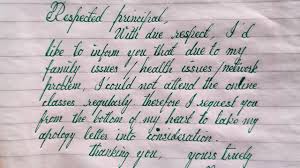 Respected principal,
With due respect, I'd
like to inform you that due to my
family issues / health issues/network
problem, I could not attend the online
classes regularly. therefore I request you
from the bottom of my heart to take my
apology letter into consideration.
thanking you, yours truely